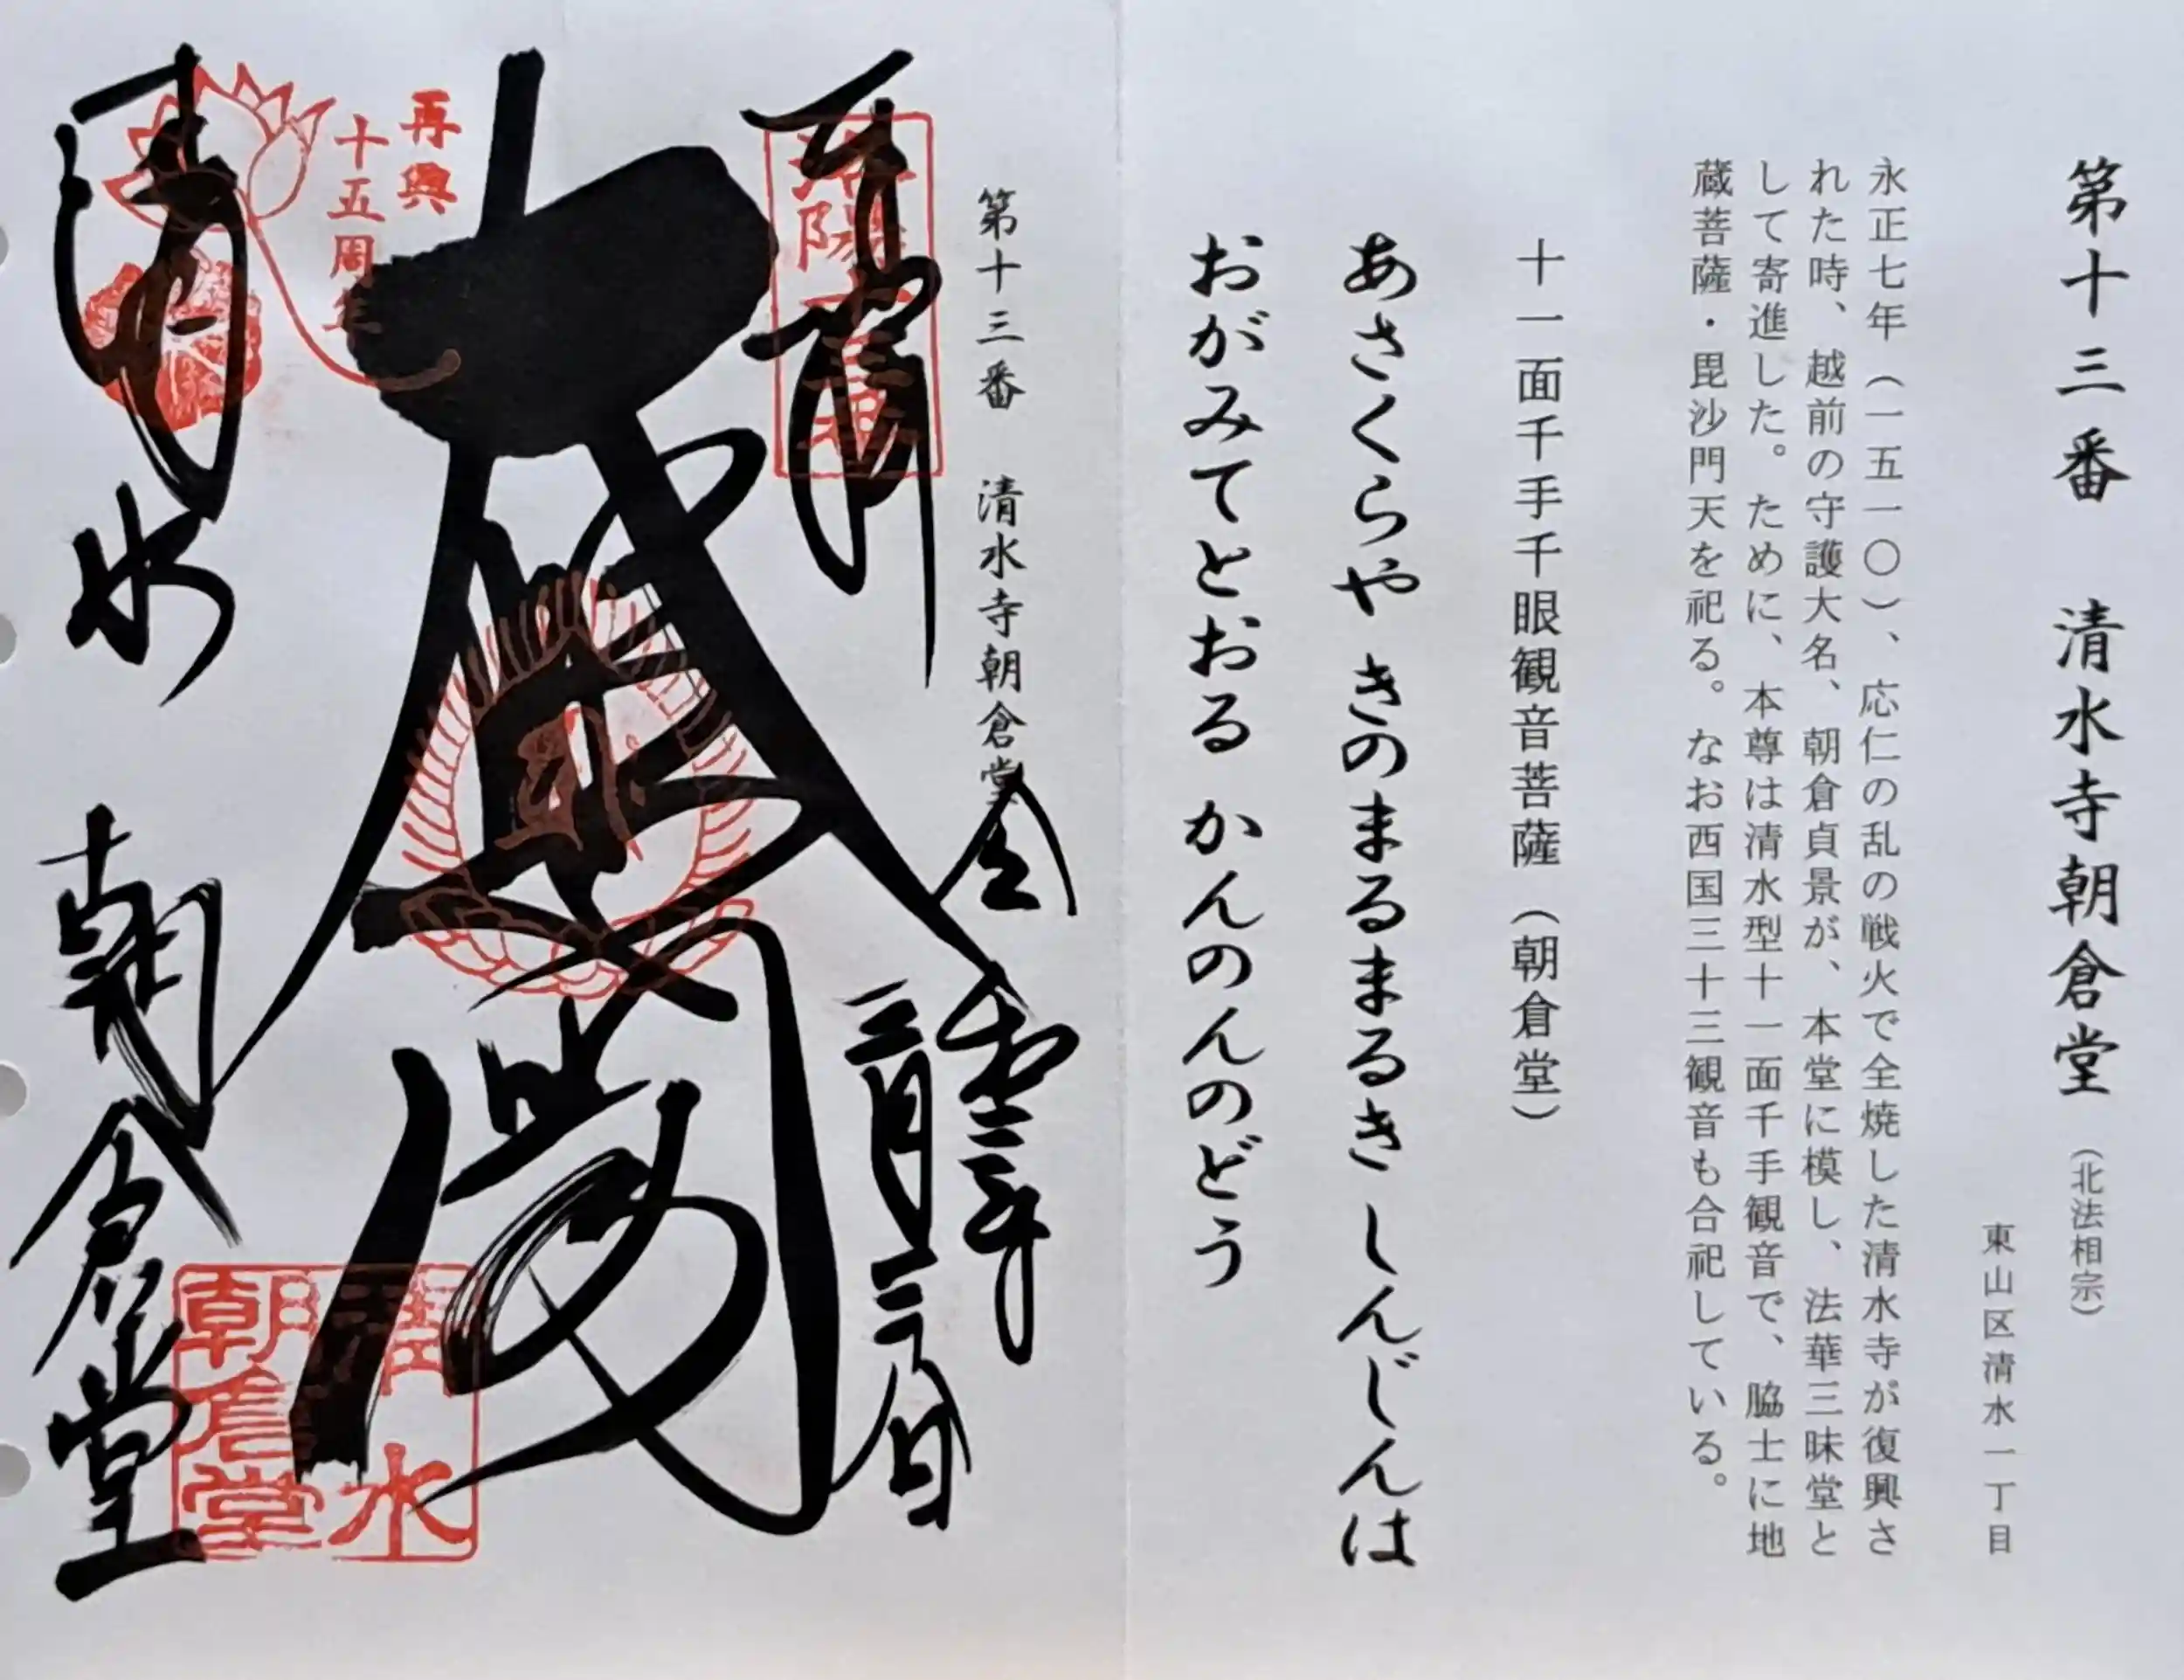 第十三番 清水寺朝倉堂（北法相宗）
東山区清水一丁目
永正七年（一五一〇）、応仁の乱の戦火で全焼した清水寺が復興さ
れた時、越前の守護大名、朝倉貞景が、本堂に模し、法華三昧堂と
して寄進した。ために、本尊は清水型十一面千手観音で、脇士に地
蔵菩薩・毘沙門天を祀る。なお西国三十三観音も合祀している。
十一面千手千眼観音菩薩（朝倉堂）
あさくらや きのまるまるき しんじんは
おがみてとおる かんのんのどう
第十三番 清水寺朝倉堂
奉拝
令和二年
二月二日
大悲閣
清水 朝倉堂
再興
十五周年
清水
朝倉堂